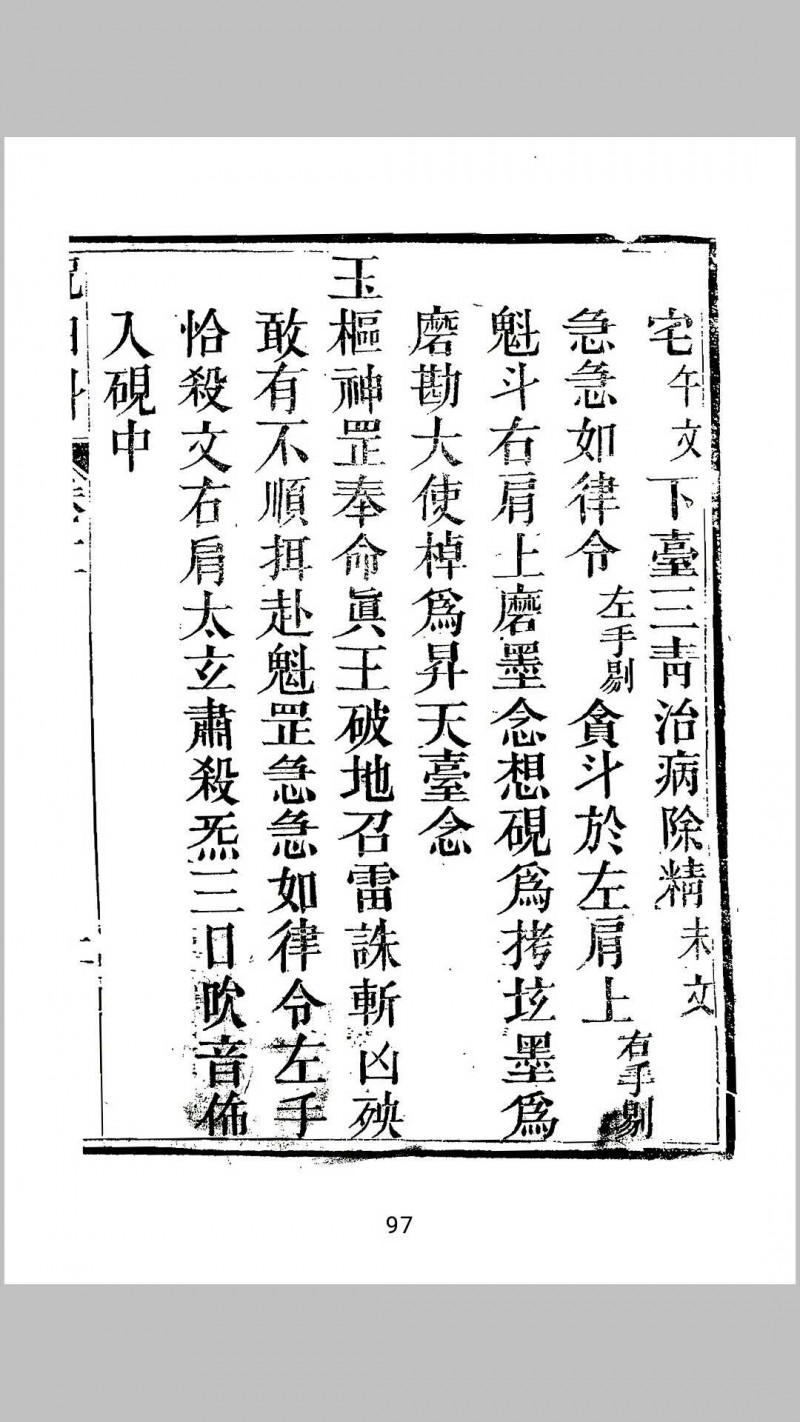 宅午文下臺三靑治病除精未文
急急如律令左手剔貪斗於左肩上右手剔
魁斗右肩上磨墨念想硯爲拷㘦墨爲
磨勘大使棹爲昇天臺念
玉樞神罡奉命眞王破地召雷誅斬凶殃
敢有不順揖赴魁罡急急如律令左手
恰殺文右肩太玄肅殺炁三日吹音佈
入硯中
97